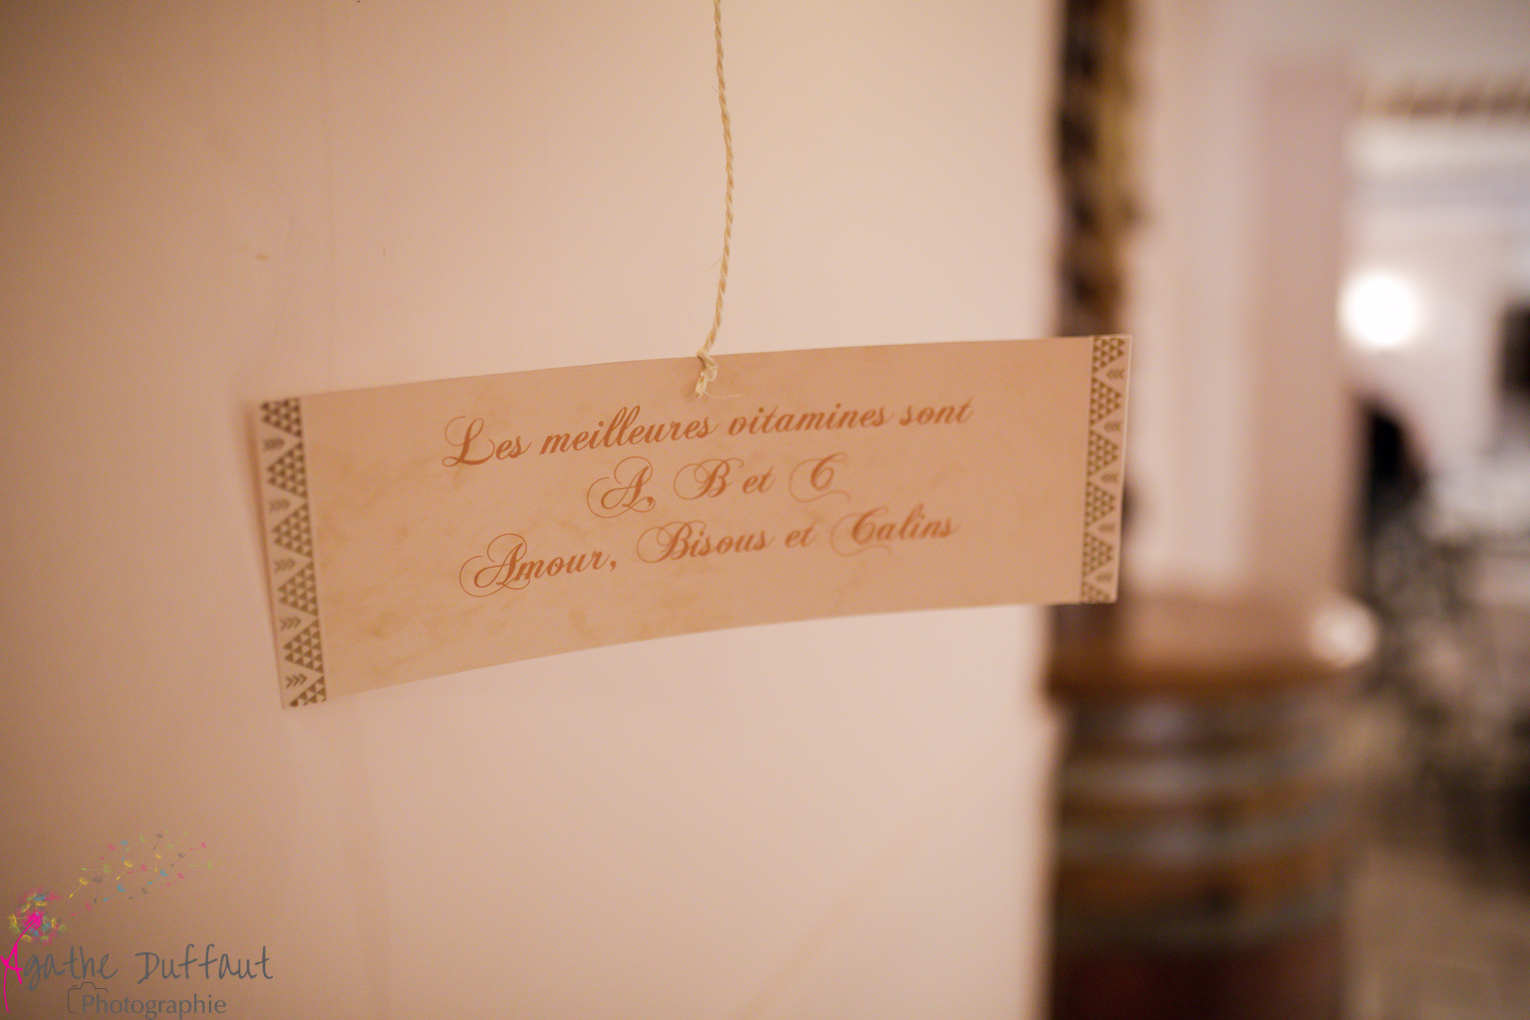 Les meilleures vitamines sont
A, B et C
Amour, Bisous et Calins
Agathe Duffaut
Photographie